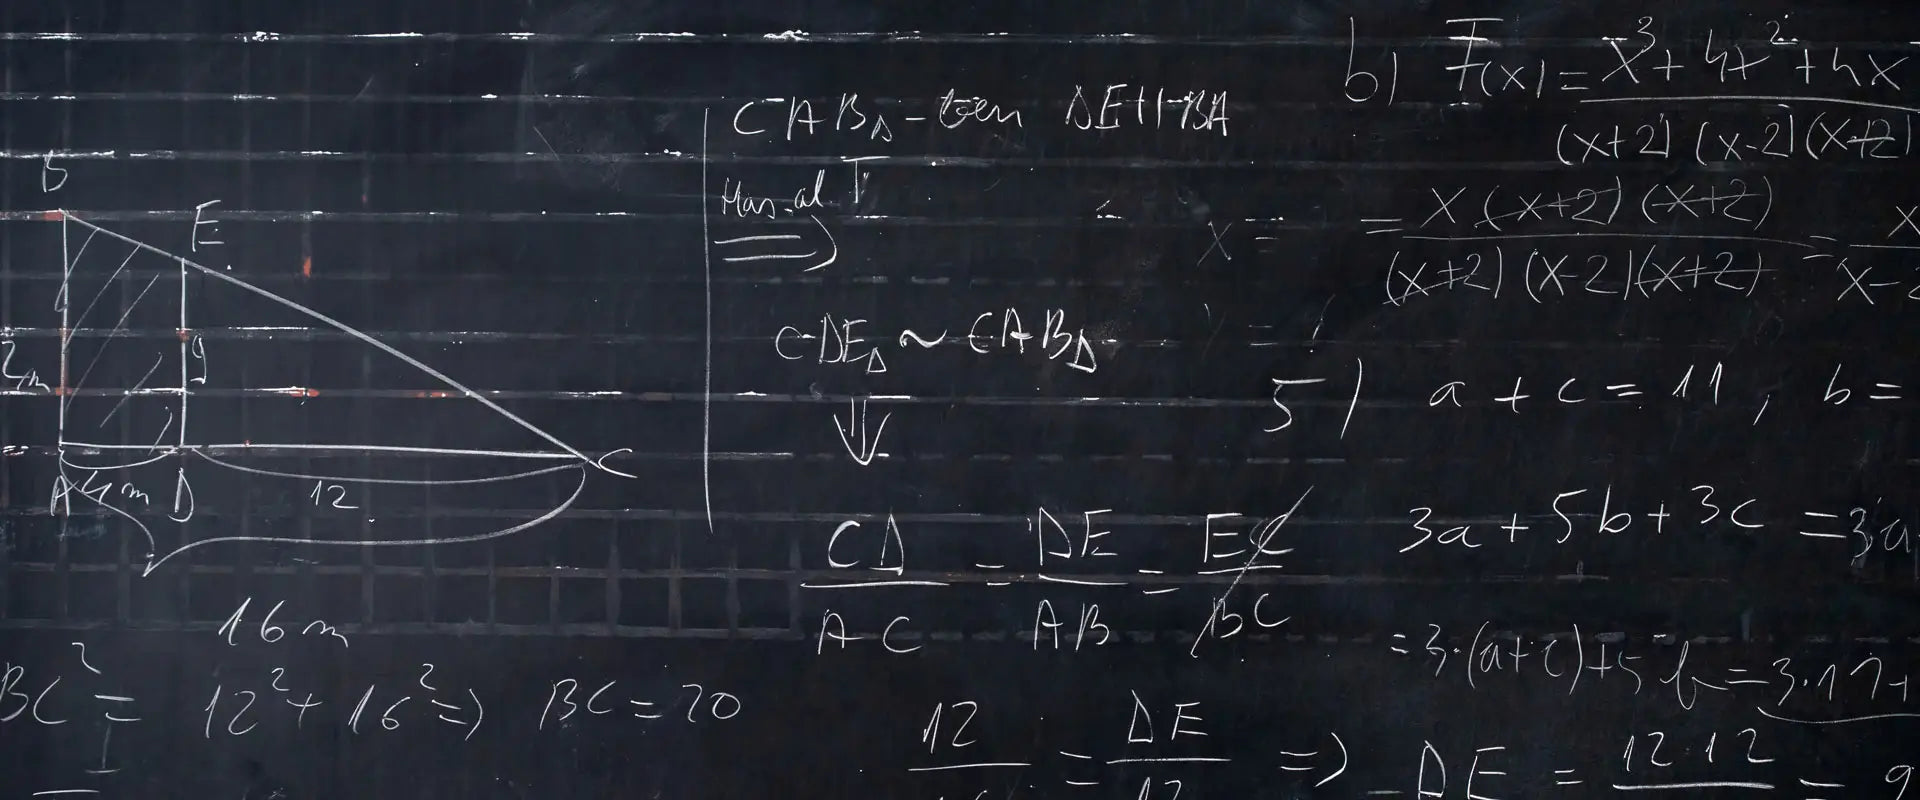 B
E
2m
9
A 4m D
12
C
16 m
BC² = 12² + 16² => BC = 20
CAB△-ben DE || BA
Has. al T
=>
CDE△ ~ CAB△
⇓
CD/AC = DE/AB = EC/BC
12/ = DE/12 => DE = 12·12/ = 9
b) F(x) = x³ + 4x² + 4x / (x+2)(x-2)(x+2)
= x(x+2)(x+2) / (x+2)(x-2)(x+2) = x / x-2
x =
y =
5) a + c = 11, b =
3a + 5b + 3c = 3a
= 3·(a+c) + 5b = 3·11 +